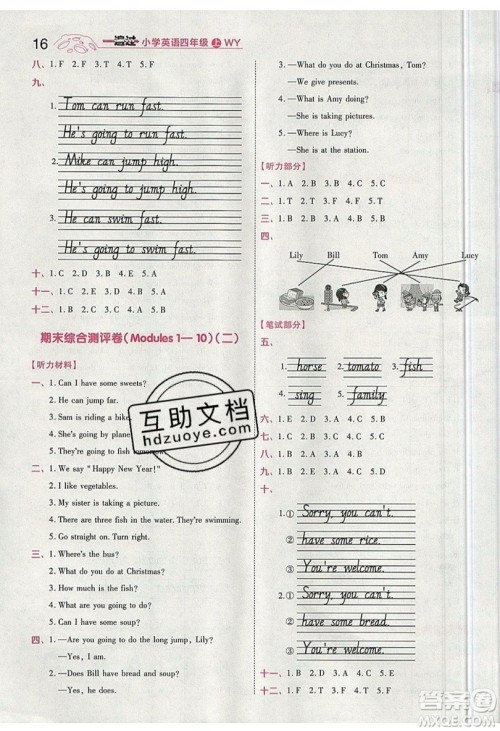 16 一遍过 小学英语四年级 上 WY
八、1. F 2. F 3. T 4. F 5. T
九、
1. Tom can run fast.
He's going to run fast.
2. Mike can jump high.
He's going to jump high.
3. He can swim fast.
He's going to swim fast.
十、1. C 2. D 3. B 4. E 5. A
十一、1. B 2. D 3. A 4. C 5. E
十二、1. C 2. A 3. B 4. A 5. A
期末综合测评卷(Modules 1—10)(二)
[听力材料]
一、1. Can I have some sweets?
2. He can jump far.
3. Sam is riding a bike
4. She's going by plane
5.
二、1. We say "Happy New Year!"
2. I like vegetables.
3. My sister is taking pictures.
4. There are three fish in the water. They're swimming.
5. Go straight on. Turn right.
三、1. Where's the bus?
2. What do you do at Christmas?
3. How much is the fish?
4. What are you going to do?
5. Can I have some soup?
四、1. —Are you going to do the long jump, Lily?
—Yes, I am.
2. —Does Bill have bread and soup?
—Yes, he does.
3. —What do you do at Christmas, Tom?
—We give presents.
4. —What is Amy doing?
—She is taking pictures.
5. —Where is Lucy?
—She is at the station.
[听力部分]
一、1. A 2. B 3. B 4. C 5. C
二、1. C 2. B 3. A 4. C 5. A
三、1. C 2. B 3. A 4. C 5. B
四、
Lily Bill Tom Amy Lucy
[笔试部分]
五、
1. horse 2. tomato 3. fish
4. sing 5. family
六、1. E 2. D 3. A 4. C 5. B
八、1. C 2. B 3. B 4. A 5. C
九、1. B 2. D 3. A 4. C 5. E
十、
1. ① Sorry, you can't.
② have some rice.
③ You're welcome.
2. ① Sorry, you can't.
② have some bread.
③ You're welcome.
十一、1. T 2. T 3. F 4. F 5. F
十二、1. F 2. F 3. T 4. T 5. T
互助文档
hdzuoye.com
答案圈
MXQE.COM